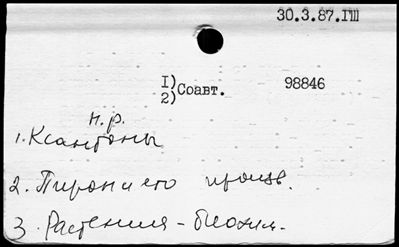 30.3.87.ГШ
1) Соавт. 98846
2)
н.р.
1. Ксантоны
2. Пирон и его произв.
3. Растения - биохим.